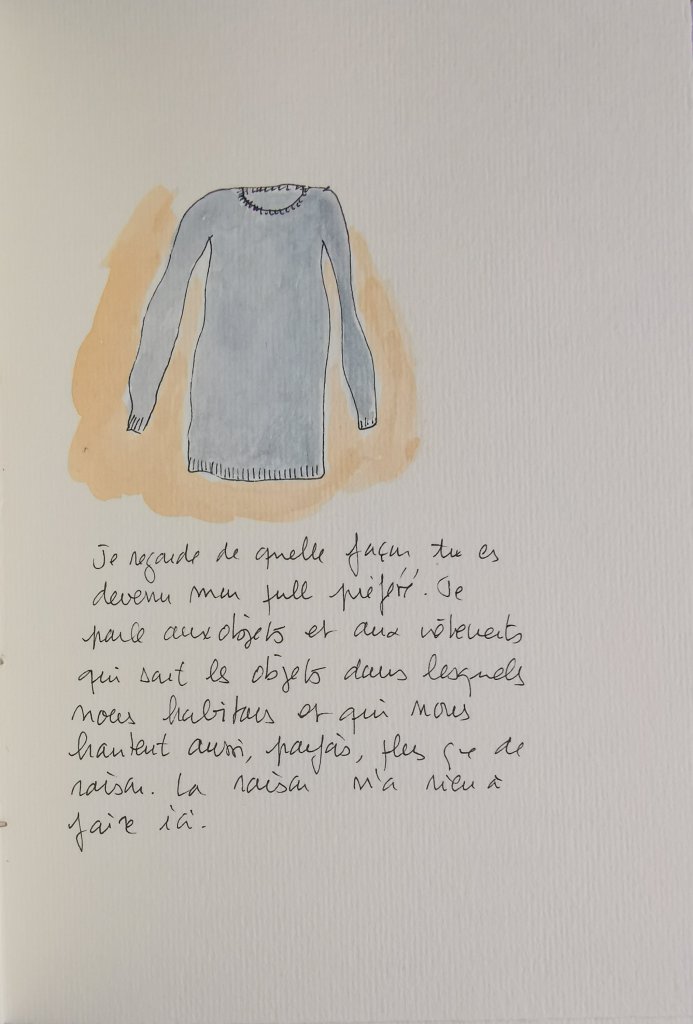 Je regarde de quelle façon tu es
devenu mon pull préféré. Je
parle aux objets et aux vêtements
qui sont les objets dans lesquels
nous habitons et qui nous
hantent aussi, parfois, plus que de
raison. La raison n'a rien à
faire ici.